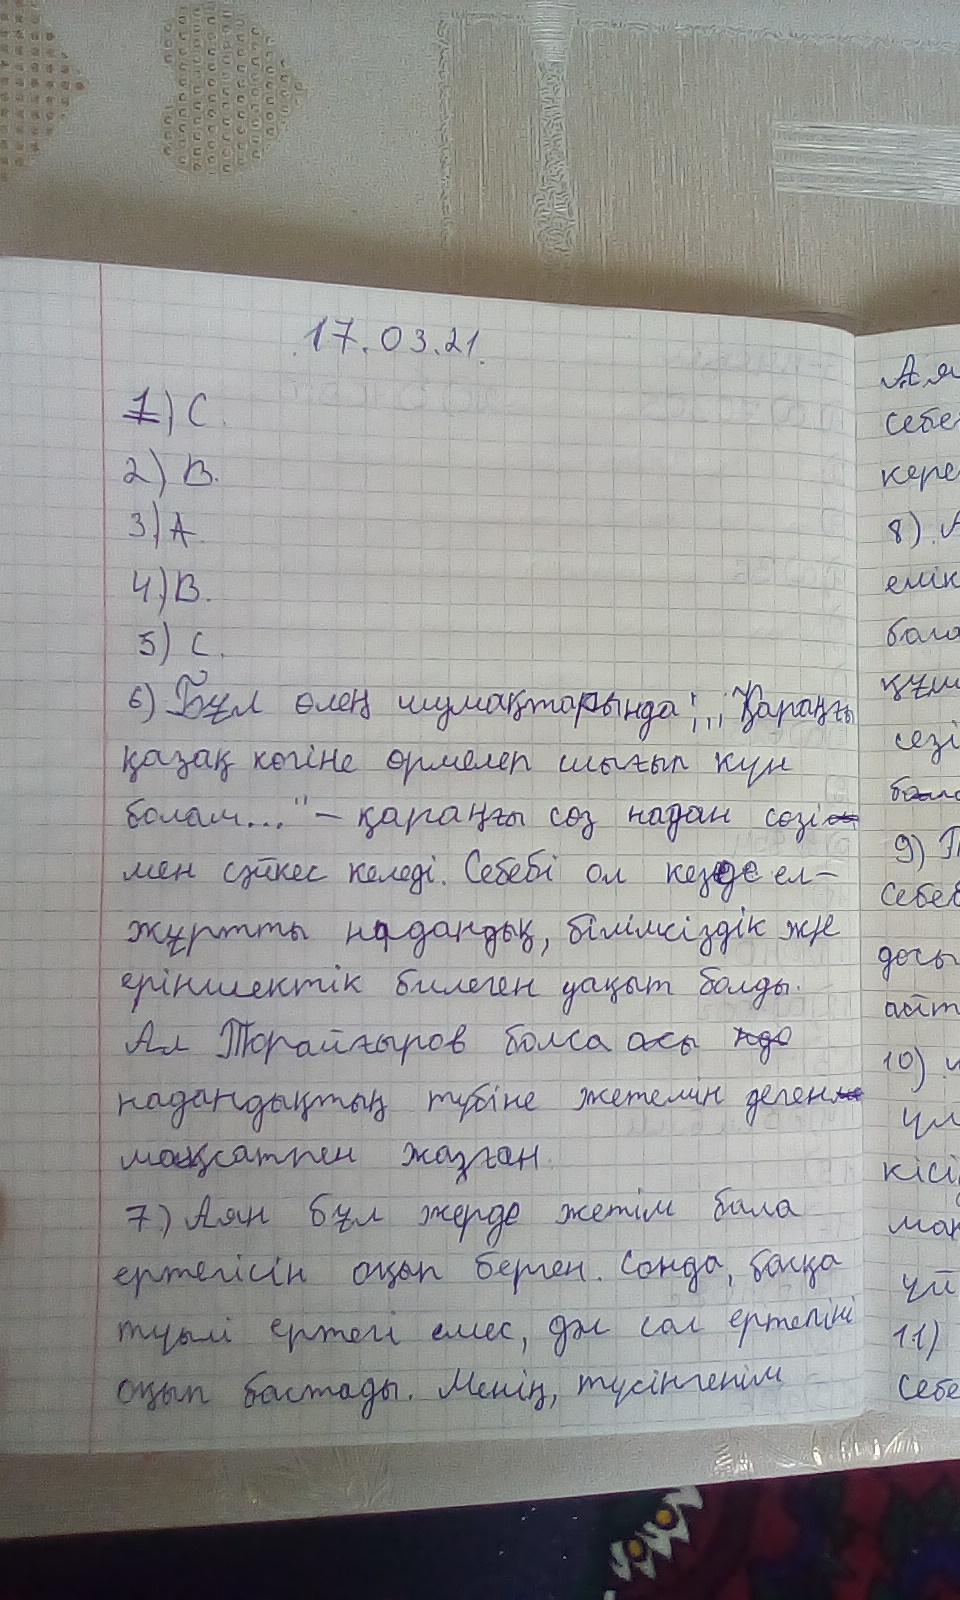 17.03.21.
1) С.
2) В.
3) А.
4) В.
5) С.
6) Бұл өлең шумақтарында: ,,Қараңғы
қазақ көгіне өрмелеп шығып күн
болам..." – қараңғы сөз надан сөзі
мен сәйкес келеді. Себебі ол кезде ел-
жұртты надандық, білімсіздік жңе
еріншектік билеген уақыт болды.
Ал Торайғыров болса осы
надандықтың түбіне жетемін деген
мақсатпен жазған.
7) Аян бұл жерде жетім бала
ертегісін оқып берген. Сонда, басқа
ертегі емес, дәл сол ертегіні
оқып бастады. Менің, түсінгенім
Ая
себе
кере
8) А
елік
бала
құш
сезі
9) П
Себеб
досы
айт
10)
ұл
кісі
мақ
үй
11)
Себе